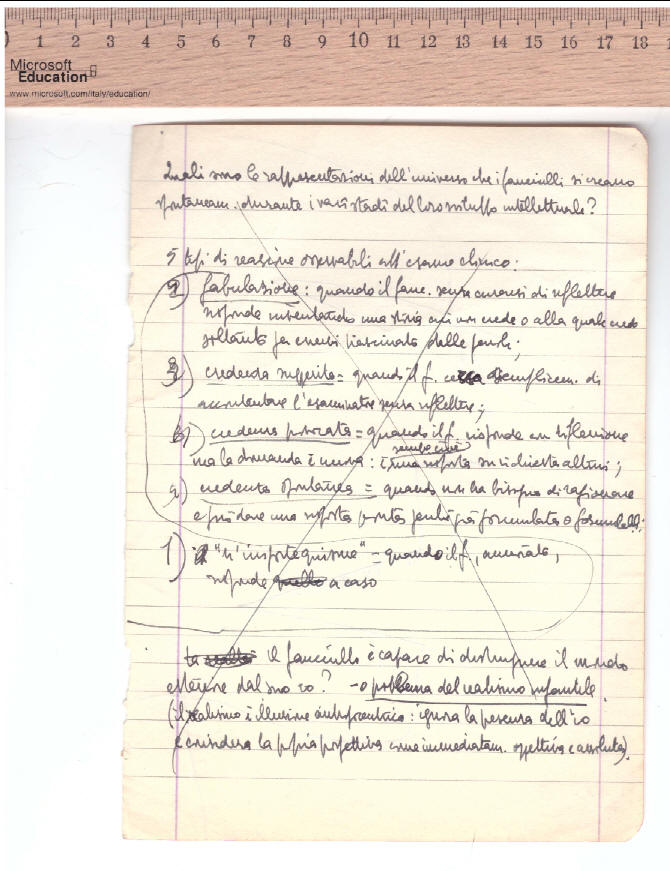 0 1 2 3 4 5 6 7 8 9 10 11 12 13 14 15 16 17 18
Microsoft
Education
www.microsoft.com/italy/education/
Quali sono le rappresentazioni dell'universo che i fanciulli si creano
spontaneam. durante i vari stadi del loro sviluppo intellettuale?
5 tipi di reazione osservabili all'esame clinico:
fabulazione: quando il fanc. senza curarsi di riflettere
risponde inventando una storia cui non crede o alla quale crede
soltanto per essersi trascinato dalle parole;
credenza suggerita = quando il f. cerca semplicem. di
accontentare l'esaminatore senza riflettere;
b) credenza provocata = quando il f. risponde con riflessione
ma la domanda è nuova: è una risposta su richiesta altrui;
a) credenza spontanea = quando non ha bisogno di ragionare
e può dare una risposta pronta perché già formulata o formulabile;
1) "n'importequisme" = quando il f., annoiato,
risponde a caso
il fanciullo è capace di distinguere il mondo
esteriore dal suo io? → problema del realismo infantile
(il realismo è illusione antropocentrica: ignora la presenza dell'io
e considera la propria prospettiva come immediatam. oggettiva e assoluta).